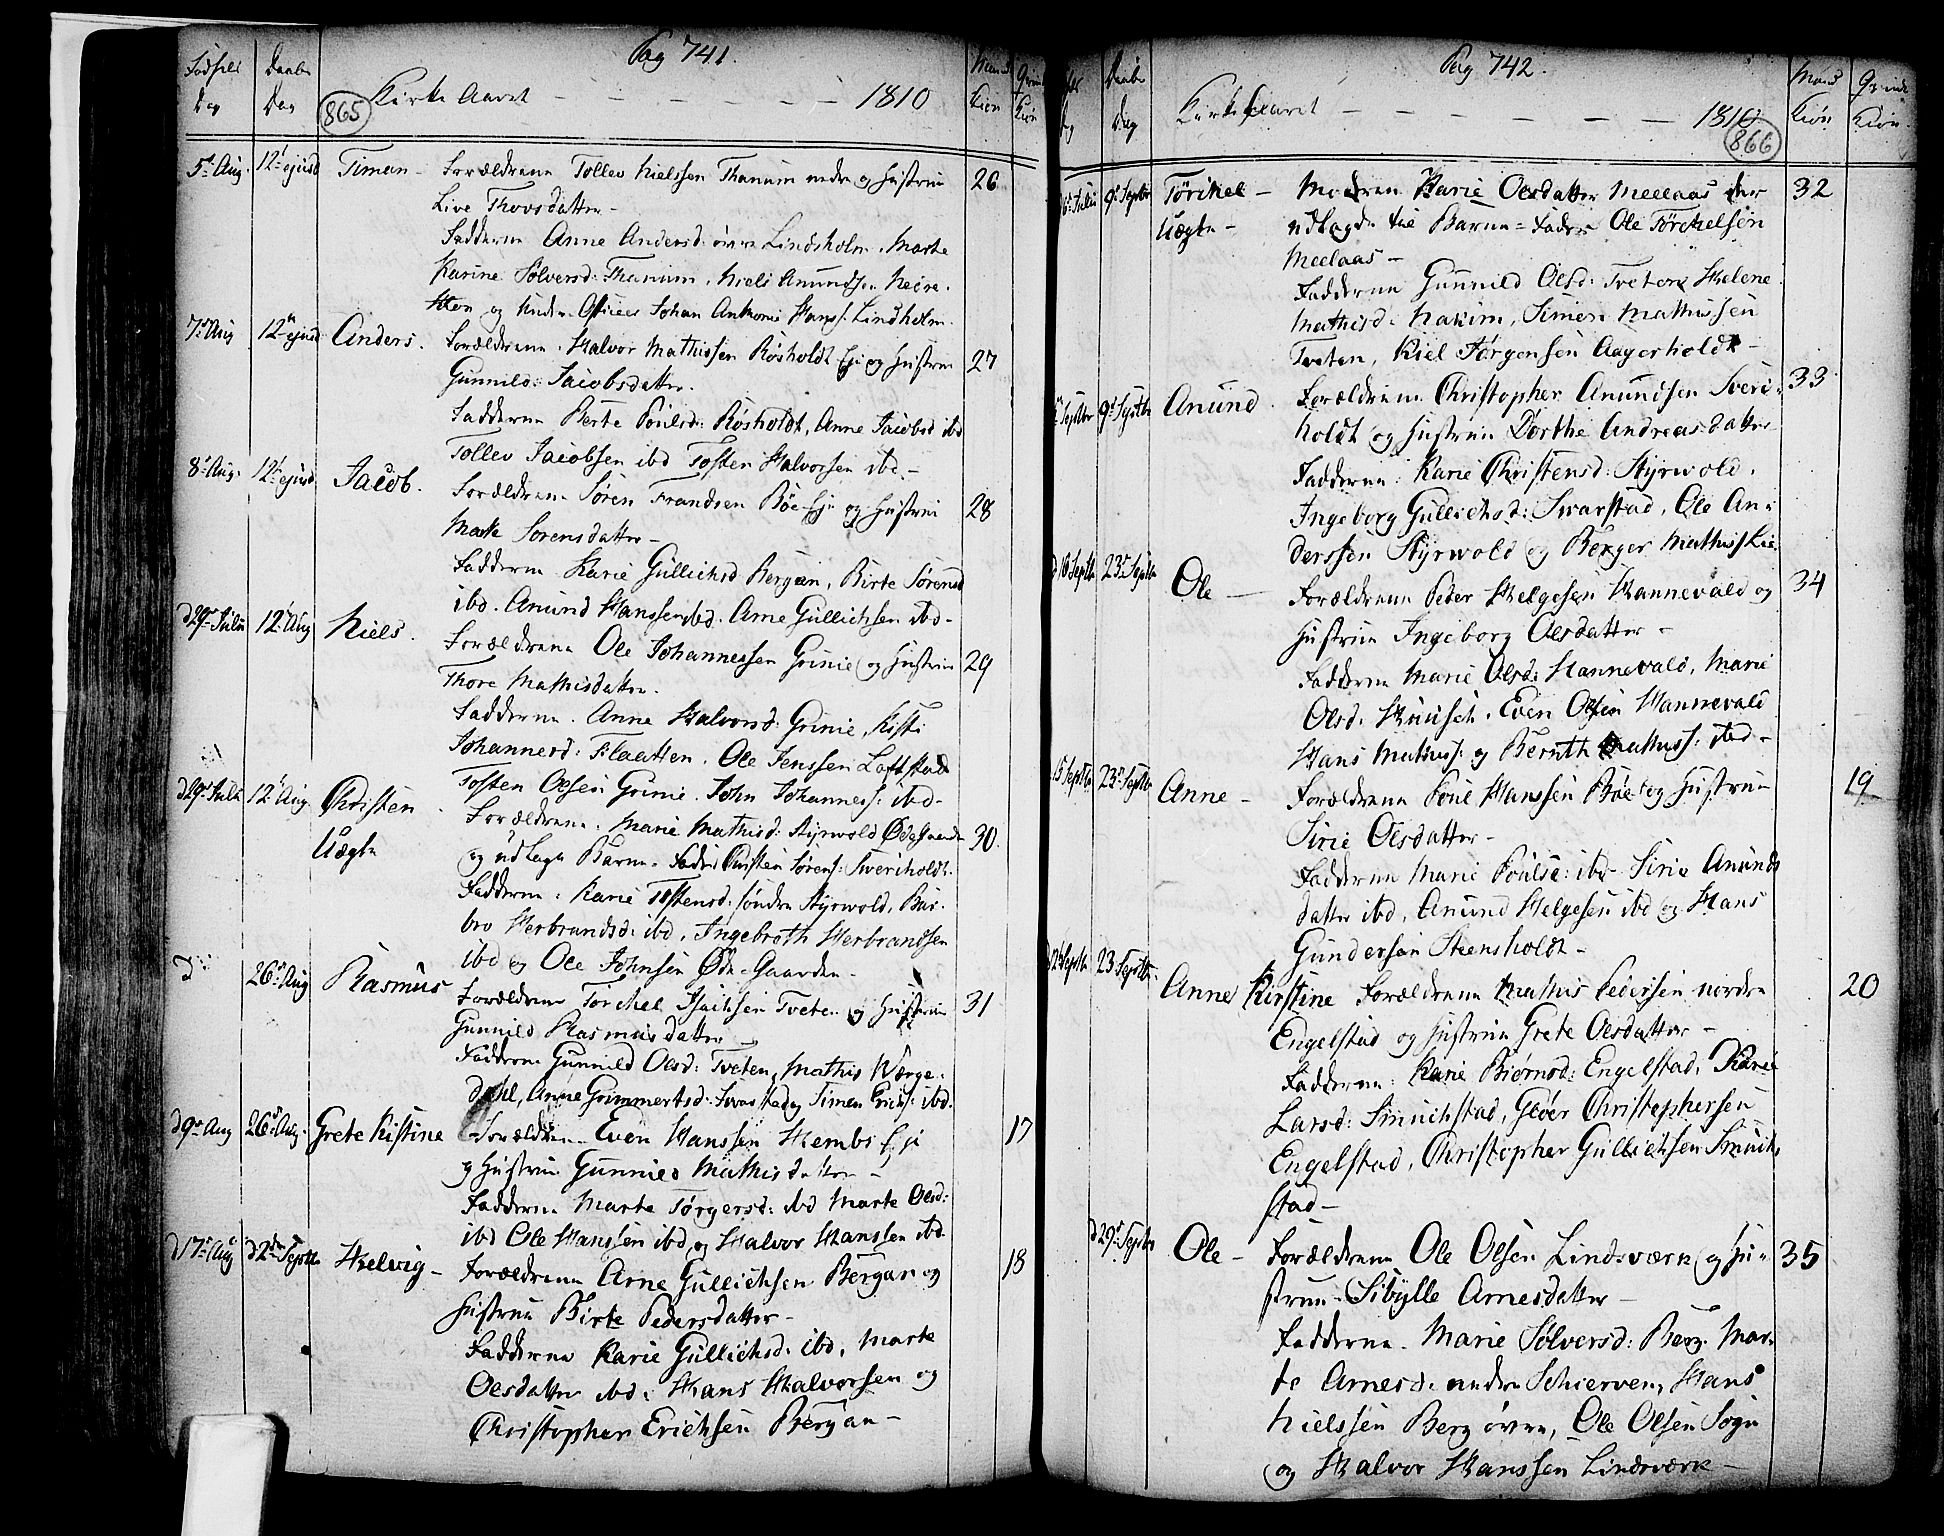 Pag 741.
Fødsels Dag
Daabs Dag
865
Kirke Aaret — — — — — — 1810
Mand Kiøn
Qvinde Kiøn
5t Aug. 12t ejusd Timan — Forældrene Tollev Nielssen Thanum nedre og Hustrue 26
Live Thovsdatter —
Fadderne Anne Andersd: øvre Lindsholm. Marte
Karine Sølversd: Thanum. Niels Anundsen
og Under Officeer Johan Anthoni Hanss: Lindholm.
7de Aug 12te ejusd Anders. Forældrene. Halvor Mathissen Røsholdt Eje og Hustrue 27
Gunnild: Jacobsdatter.
Fadderne Berte Poulsd: Røsholdt, Anne Jacobsd ibd
Tollev Jacobsen ibd Tosten Halvorsen ibd —
8t Aug. 12t ejusd Jacob. Forældrene Søren Frandsen Bøe-Eje og Hustrue 28
Marte Sorensdatter —
Fadderne Karie Gullichsd Bergan, Birte Sørensd
ibd. Anund Hanssen ibd. Arne Gullichsen ibd —
d 29de Julii 12t Aug Niels. Forældrene Ole Johannessen Grinie og Hustrue 29
Thore Mathisdatter.
Fadderne. Anne Halvorsd: Grinie, Kisti
Johannesd: Flaatten. Ole Jenssen Loftstad
Tosten Olsen Grinie. John Johanness: ibd —
d 29de Julii 12t Aug Christen Forældrene. Marie Mathisd: Styrwold Ødegaarden 30.
Uægte og udlagte Barne-Fader Christen Sørens: Sveriholdt.
Fadderne: Karie Tostensd: søndre Styrwold, Bar-
bro Herbrandsd: ibd, Ingebreth Herbrandsen
ibd og Ole Johnsen Øde-Gaarden —
d 26de Aug Rasmus Forældrene Torchel Isachsen Tveten og Hustrue 31
Gunnild Rasmusdatter
Fadderne Gunnild Olsd: Tveten, Mathis Wærge-
dahl, Anne Grimmertsd: Svarstad og Timen Erichs: ibd.
d 9de Aug 26de Aug. Grete Kistine Forældrene Even Hanssen Hembs Eje 17
og Hustrue Gunnild Mathisdatter —
Fadderne Marte Torgersd: ibd Marte Olsd:
ibd Ole Hanssen ibd og Halvor Hanssen ibd.
d 17de Aug d 2den Septbr Helvig — Forældrene Arne Gullichsen Bergan og 18
Hustrue Birte Pedersdatter —
Fadderne Karie Gullichsd: ibd, Marte
Olsdatter ibd: Hans Halvorsen og
Christopher Erichsen Bergan —
Pag 742.
Daabs Dag
Kirke Aaret — — — — — — 1810
866
Mand Kiøn
Qvinde Kiøn
Julii 9de Septbr Törchel — Modren Karie Olsdatter Meelaas der 32
Uægte — udlagde til Barne-Fader Ole Törchelsen
Meelaas —
Fadderne Gunnild Olsd: Tveten Helene
Mathisd: Nakim, Simen Mathissen
Tveten, Kiel Jørgensen Aagerholdt —
Septbr 9de Septbr Anund. Forældrene Christopher Anundsen Sveri- 33
holdt og Hustrue Dorthe Andreasdatter
Fadderne: Karie Christensd: Styrwold.
Ingeborg Gullichsd: Svarstad, Ole An-
derssen Styrwold og Berger Mathiss
d 16 Septbr 23de Septbr Ole — Forældrene Peder Helgesen Hannevald og 34
Hustrue Ingeborg Olsdatter —
Fadderne Marie Olsd: Hannevald, Marie
Olsd. Even Olsen Hannevald
Hans Mathiss: og Bernth Mathiss: ibd —
15 Septbr 23de Septbr Anne — Forældrene Poul Hanssen Bøe og Hustrue 19
Sirie Olsdatter —
Fadderne Marie Poulsd: ibd — Sirie Anunds
datter ibd, Anund Helgesen ibd og Hans
Gundersen Steensholdt —
Septbr 23 Septbr. Anne Kirstine Forældrene Mathis Pedersen nordre 20
Engelstad og Hustrue Grete Olsdatter —
Fadderne: Karie Biørnsd: Engelstad, Karie
Larsd: Smuchstad, Gloer Christophersen
Engelstad, Christopher Gullichsen Smuch-
stad —
d 29de Septbr Ole — Forældrene Ole Olsen Lindsværk og Hu- 35
strue — Sibylle Arnesdatter —
Fadderne. Marie Sølversd: Berg. Mar-
te Arnesd: nedre Schierven, Hans
Nielssen Berg øvre, Ole Olsen Sogn
og Halvor Hanssen Lindsværk —